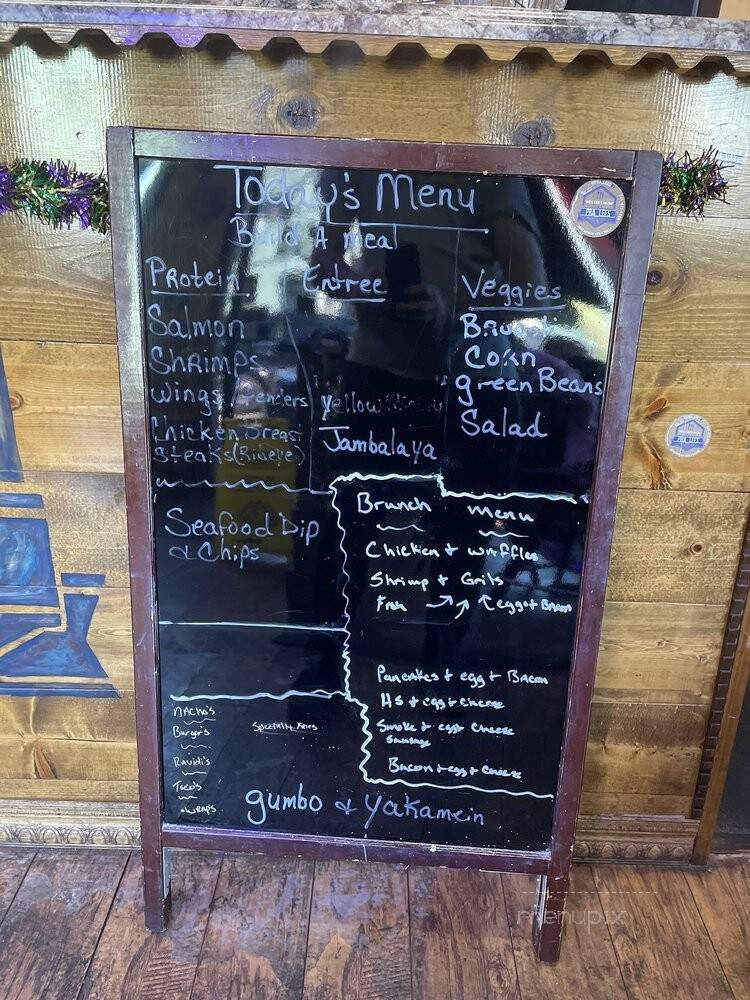 Today's Menu
Build A meal
Protein
Salmon
Shrimps
Wings / Tenders
Chicken breast
Steaks (Ribeye)
Entree
Yellow
Jambalaya
Veggies
Corn
green Beans
Salad
Seafood Dip
& Chips
Brunch menu
Chicken + waffles
Shrimp + Grits
Fish egg + Bacon
Pancakes + egg + Bacon
HS + egg + cheese
Smoke + egg + cheese
Sausage
Bacon + egg + cheese
NAcho's
Burger's
Ravioli's
Taco's
wrap's
Specialty Fries
gumbo & Yakamein
menupix